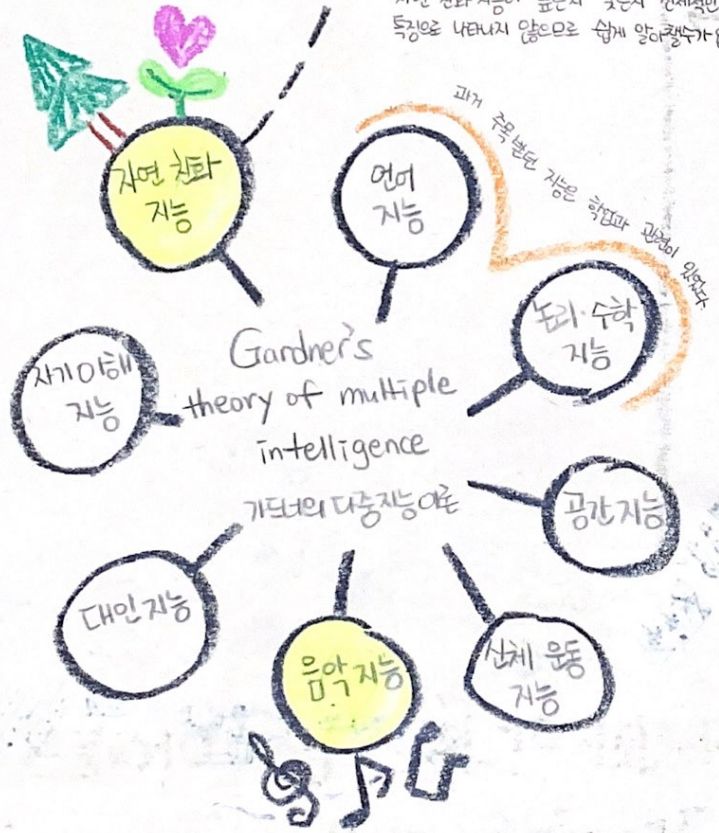 특징으로 나타나지 않으므로 쉽게 알아챌수가
과거 주목 받던 지능은 학업과 관련이 있었다.
자연 친화
지능
언어
지능
논리·수학
지능
자기이해
지능
Gardner's
theory of multiple
intelligence
가드너의 다중지능이론
공간지능
대인지능
음악지능
신체 운동
지능